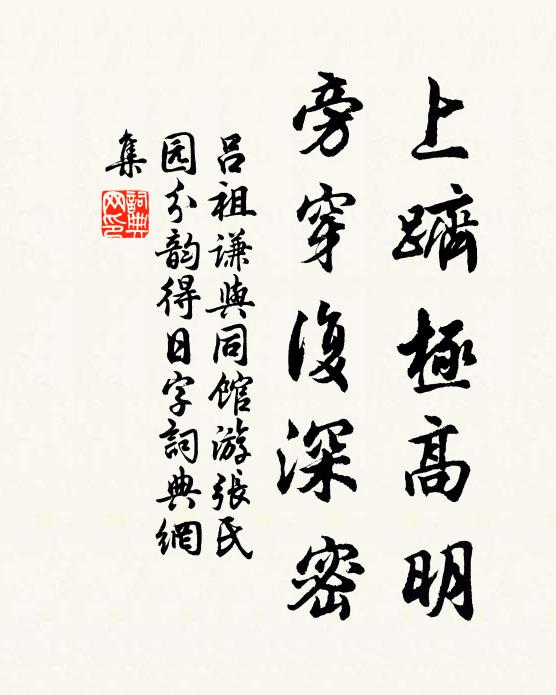 上躋極高明
旁穿復深密
吕祖謙與同館游張氏
园分韵得日字詞典網
集
詞典網印